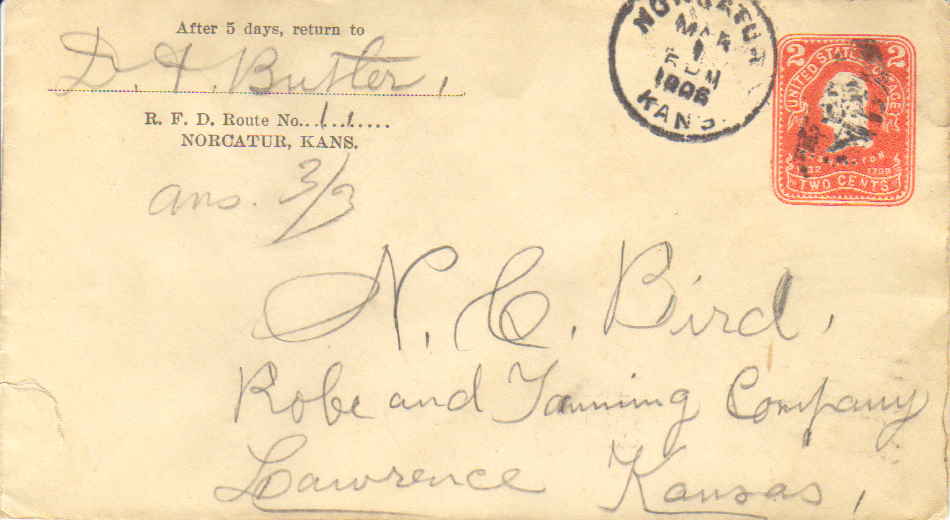 After 5 days, return to
D. A. Butler,
R. F. D. Route No...1 1.....
NORCATUR, KANS.
ans. 3/3
NORCATUR
MAR
1
1906
KANS.
2 2
UNITED STATES POSTAGE
TWO CENTS
N. C. Bird,
Robe and Tanning Company
Lawrence Kansas,